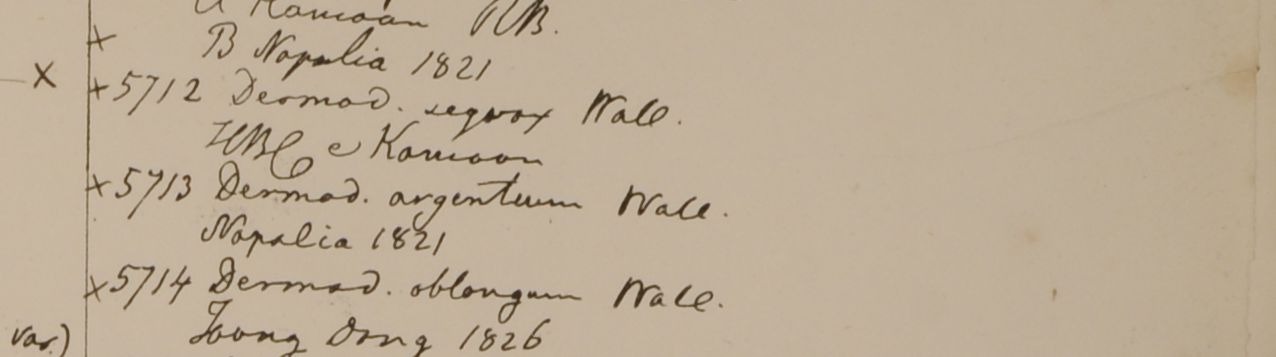 Kamaon RB.
× B Napalia 1821
× ×5712 Dermod. sequax Wall.
HBC e Kamaon
×5713 Dermod. argenteum Wall.
Napalia 1821
×5714 Dermod. oblongum Wall.
Toong Dong 1826
var.)